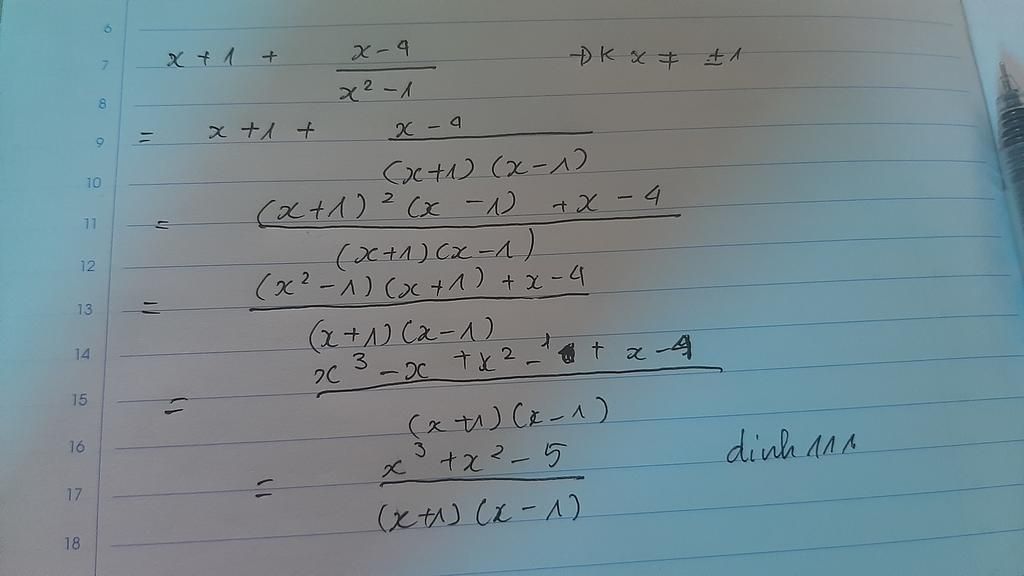 6
7 x + 1 + \frac{x - 4}{x² - 1} ĐK x ≠ ±1
8
9 = x + 1 + \frac{x - 4}{(x+1)(x-1)}
10
11 = \frac{(x+1)²(x - 1) + x - 4}{(x+1)(x-1)}
12
13 = \frac{(x² - 1)(x+1) + x - 4}{(x+1)(x-1)}
14
15 = \frac{x³ - x + x² - 1 + x - 4}{(x+1)(x-1)}
16
17 = \frac{x³ + x² - 5}{(x+1)(x-1)} dinh111
18